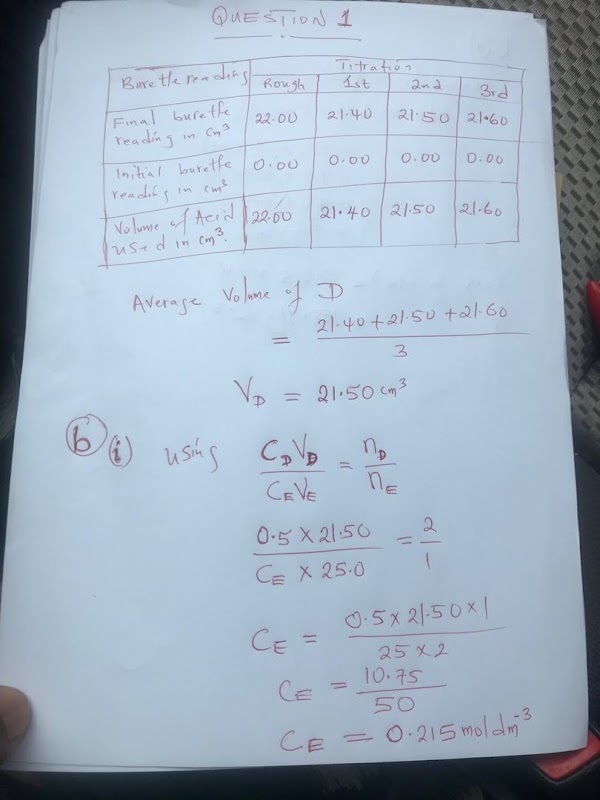 QUESTION 1
Burette reading
Titration
Rough 1st 2nd 3rd
Final burette
reading in cm³
22.00 21.40 21.50 21.60
Initial burette
reading in cm³
0.00 0.00 0.00 0.00
Volume of Acid
used in cm³.
22.00 21.40 21.50 21.60
Average Volume of D
= (21.40 + 21.50 + 21.60) / 3
V_D = 21.50 cm³
b (i) using C_D V_D / C_E V_E = n_D / n_E
0.5 × 21.50 / C_E × 25.0 = 2 / 1
C_E = 0.5 × 21.50 × 1 / 25 × 2
C_E = 10.75 / 50
C_E = 0.215 mol dm⁻³